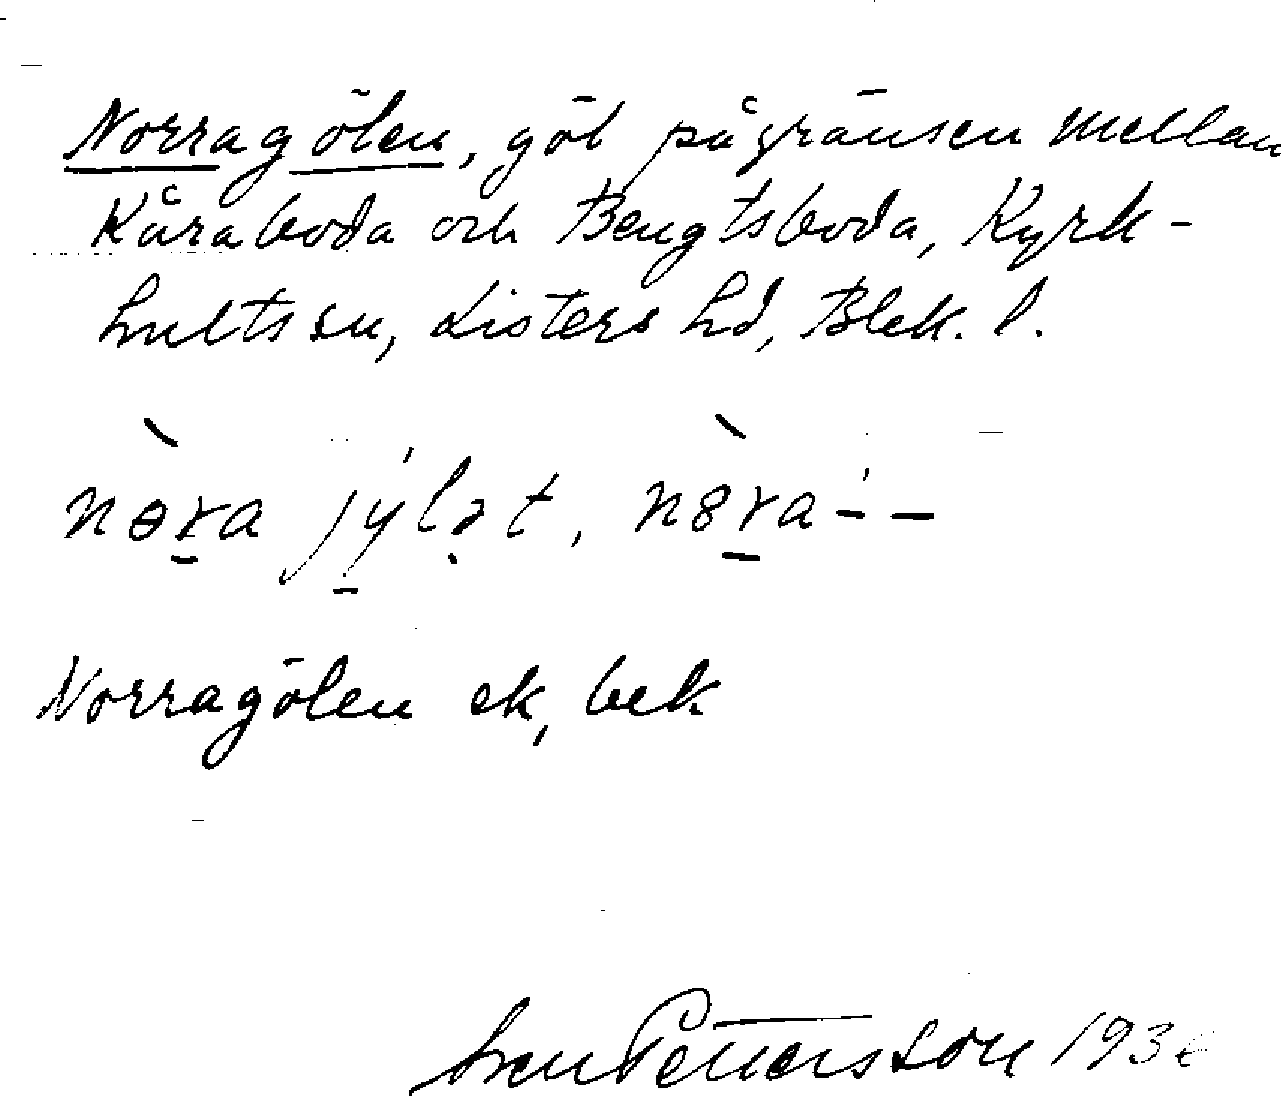 Norragölen, göl på gränsen mellan
Kåraboda och Bengtsboda, Kyrk-
hults sn, Listers hd, Blek. l.
nɵ̀ra jýlət, nȣ̀ra - –
Norragölen ek, bek
Sven Pettersson 193